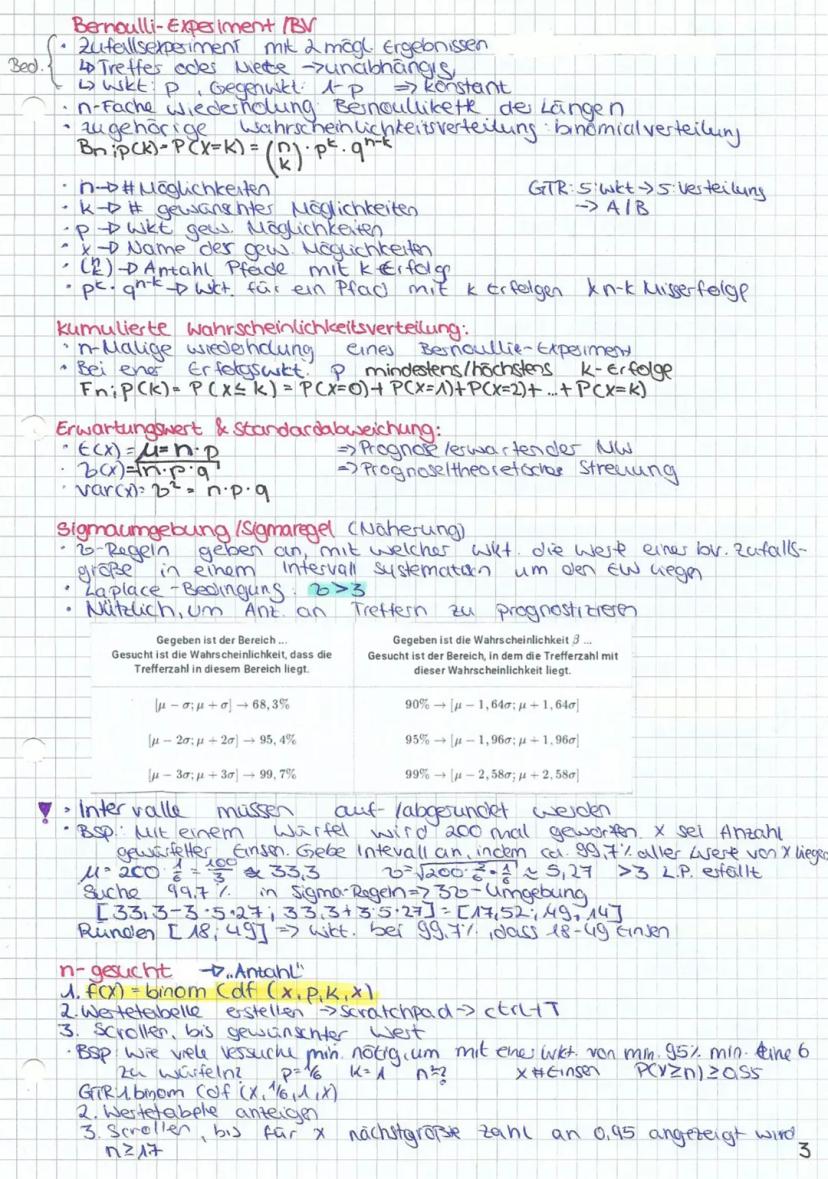 Bernoulli-Experiment /BV
Bed.
· Zufallsexperiment mit 2 mögl. Ergebnissen
↳ Treffer oder Niete → unabhängig
↳ Wkt: p, Gegenwkt: 1-p => konstant
· n-Fache Wiederholung: Bernoullikette der Längen
· zugehörige Wahrscheinlichkeitsverteilung: binomialverteilung
Bn;p(k) = P(X=k) = (n k) · p^k · q^n-k
· n → # Möglichkeiten
GTR: 5: Wkt → 5: Verteilung
· k → # gewünschter Möglichkeiten
→ A/B
· p → Wkt gew. Möglichkeiten
· x → Name der gew. Möglichkeiten
· (n k) → Anzahl Pfade mit k Erfolge
· p^k · q^n-k → Wkt. für ein Pfad mit k Erfolgen & n-k Misserfolge
kumulierte Wahrscheinlichkeitsverteilung:
· n-Malige Wiederholung eines Bernoullie-Experiment
· Bei einer Erfolgswkt. p mindestens/höchstens k-Erfolge
Fn;p(k) = P(X≤k) = P(X=0)+P(X=1)+P(X=2)+...+P(X=k)
Erwartungswert & Standardabweichung:
· E(x) = μ = n·p => Prognose/erwartender MW
· σ(x) = √n·p·q => Prognose/theoretische Streuung
· Var(x) = σ² = n·p·q
Sigmaumgebung/Sigmaregel (Näherung)
· σ-Regeln geben an, mit welcher Wkt. die Werte einer bv. Zufalls-
größe in einem Intervall systematisch um den EW liegen
· Laplace-Bedingung: σ>3
· Nützlich, um Anz. an Treffern zu prognostizieren
Gegeben ist der Bereich ...
Gesucht ist die Wahrscheinlichkeit, dass die
Trefferzahl in diesem Bereich liegt.
Gegeben ist die Wahrscheinlichkeit β ...
Gesucht ist der Bereich, in dem die Trefferzahl mit
dieser Wahrscheinlichkeit liegt.
[μ − σ; μ + σ] → 68,3%
90% → [μ − 1,64σ; μ + 1,64σ]
[μ − 2σ; μ + 2σ] → 95,4%
95% → [μ − 1,96σ; μ + 1,96σ]
[μ − 3σ; μ + 3σ] → 99,7%
99% → [μ − 2,58σ; μ + 2,58σ]
! · Intervalle müssen auf-/abgerundet werden
· BSP.: Mit einem Würfel wird 200 mal geworfen. X sei Anzahl
gewürfelter Einsen. Gebe Intevall an, indem ca. 99,7% aller Werte von X liegen
μ = 200 · 1/6 = 100/3 ≈ 33,3 σ = √200 · 5/6 · 1/6 ≈ 5,27 >3 L.P. erfüllt
Suche 99,7% in Sigma-Regeln => 3σ-Umgebung
[33,3-3·5,27; 33,3+3·5,27] = [17,52; 49,14]
Runden [18; 49] => Wkt. bei 99,7%, dass 18-49 Einsen
n-gesucht → „Anzahl"
1. f(x) = binom Cdf (x, p, k, x)
2. Wertetabelle erstellen → Scratchpad → ctrl+T
3. Scrollen, bis gewünschter Wert
· BSP: Wie viele Versuche min. nötig, um mit einer Wkt. von min. 95% min. eine 6
zu würfeln? p=1/6 k=1 n=? X # Einsen P(X≥n) ≥ 0,95
GTR 1 binom Cdf (x, 1/6, 1, x)
2. Wertetabelle anzeigen
3. Scrollen, bis für x nächstgrößte Zahl an 0,95 angezeigt wird
n≥17
3